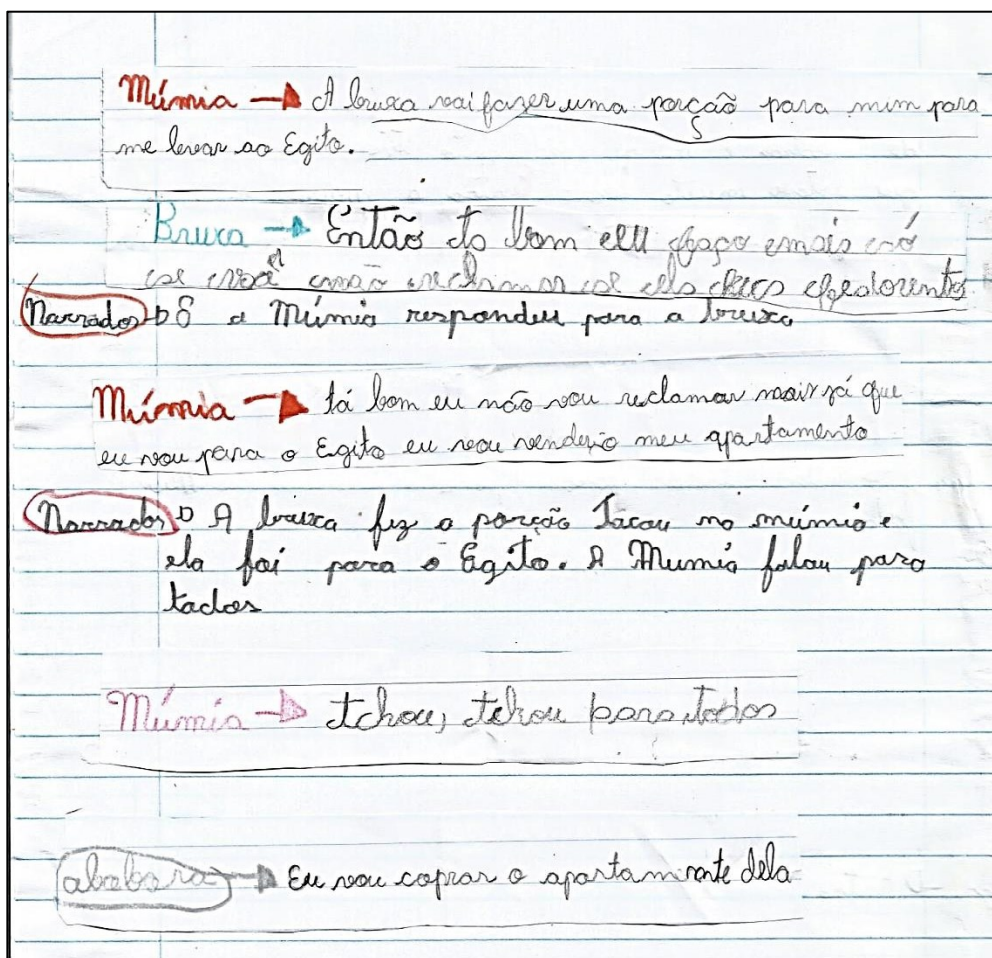 Múmia → A bruxa vai fazer uma porção para mim para
me levar ao Egito.
Bruxa → Então do bom eu faço e mais só
se você não reclamar se ela fedorento
Narrador → E a Múmia respondeu para a bruxa
Múmia → tá bom eu não vou reclamar mais já que
eu vou para o Egito eu vou vender o meu apartamento
Narrador → A bruxa fez a porção Tacou na múmia e
ela foi para o Egito. A Mumia falou para
todos
Múmia → tchou, tchou para todos
ababora → Eu vou coprar o apartamente dela